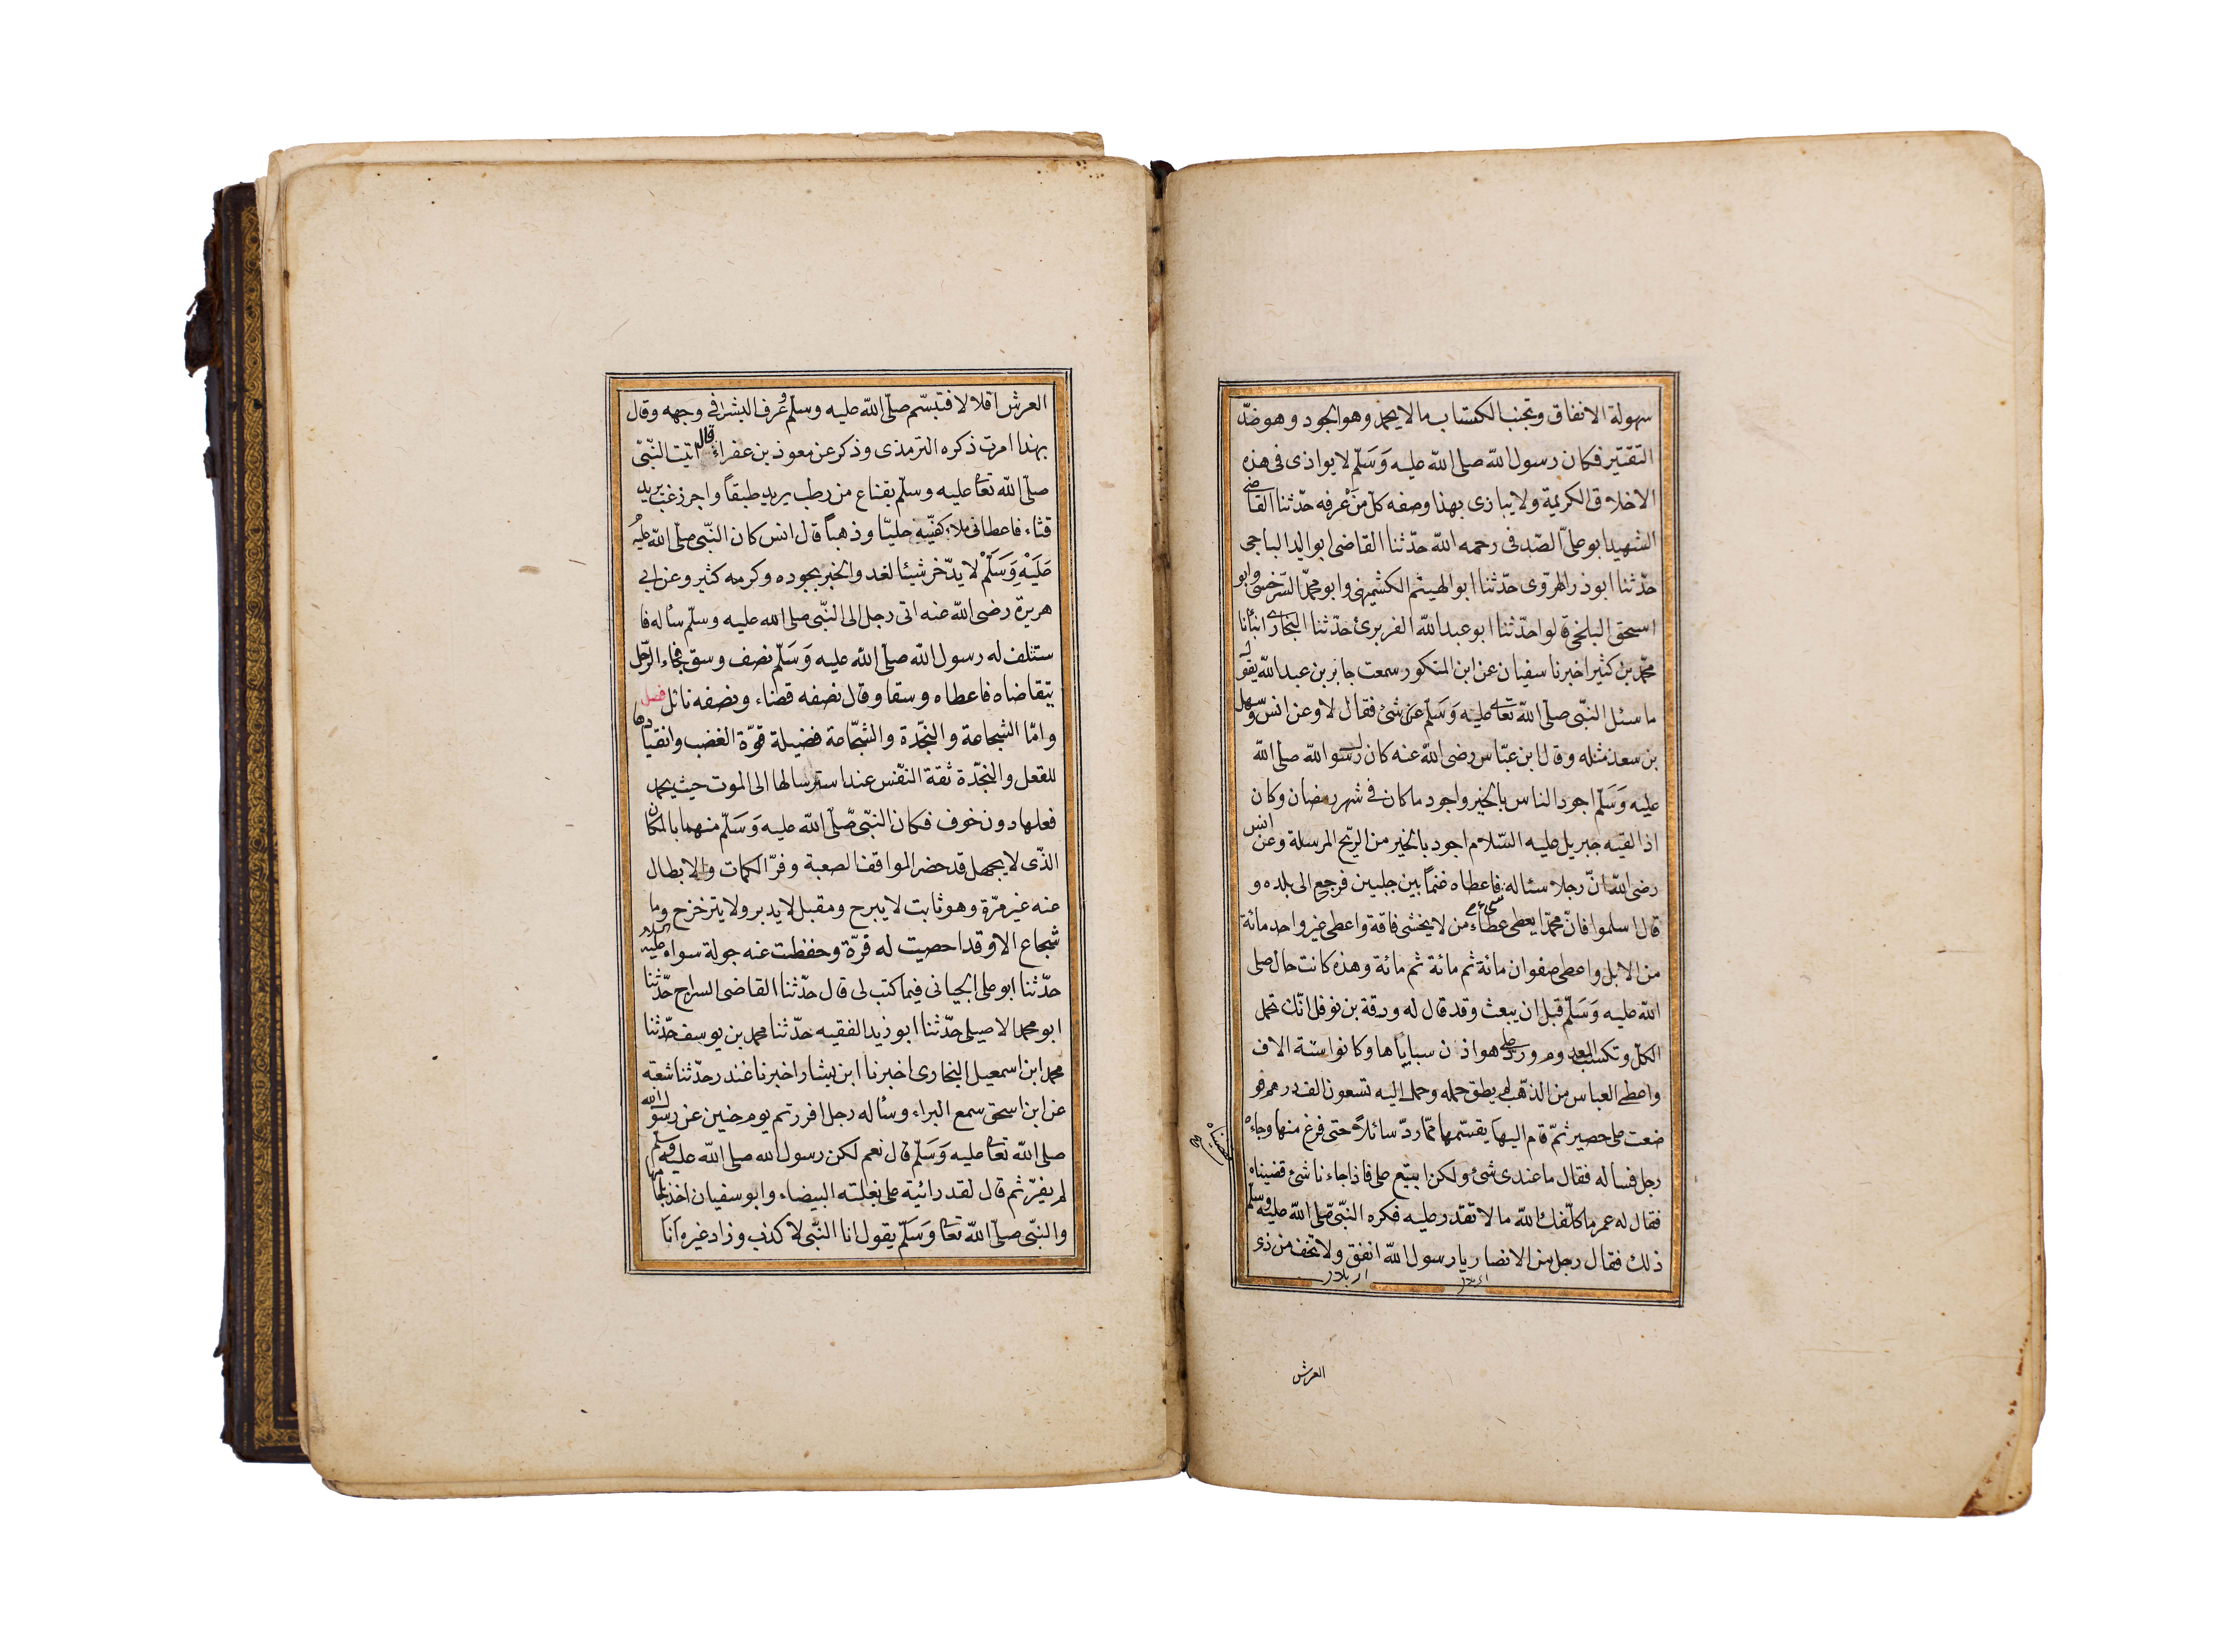 سهولة الانفاق وتجنب الكستاب مالا يحمد وهو الجود وهو ضدّ
التقتير فكان رسول اللّه صلى اللّه عليه وَسَلّم لا يوازى فى هذه
الاخلاق الكريمة ولا يبازى بهذا وصفه كلّ مَنْ عرفه حدّثنا القاضى
الشهيد ابو علىّ الصّدفى رحمه اللّه حدّثنا القاضى ابو اليد الباجى
حدّثنا ابو ذر الهروّى حدّثنا ابو الهيثم الكشميهنى وابو محمدّ السّرخسى وابو
اسحق البلخى قالوا حدّثنا ابو عبد اللّه الفربرىّ حدّثنا البخارى انبأنا
محمّد بن كثير اخبرنا سفيان عن ابن المنكور سمعت جابر بن عبد اللّه يقول
ما سئل النّبى صلّى اللّه تعالى عليه وَسَلّم عن شئ فقال لا وعن انس وسهل
بن سعد مثله وقال ابن عبّاس رضى اللّه عنه كان رسول اللّه صلّى اللّه
عليه وَسَلّم اجود الناس بالخير واجود ما كان فى شهر رمضان وكان
اذا لقيه جبريل عليه السّلام اجود بالخير من الرّيح المرسلة وعن انس
رضى اللّه انّ رجلا سئاله فاعطاه غنماً بين جبلين فرجع الى بلده و
قال اسلموا فانّ محمّدا يعطى عطاء من لا يخشى فاقة واعطى غير واحد مائة
من الابل واعطى صفوان مائة ثم مائة ثم مائة وهذه كانت حال صلى
اللّه عليه وَسَلّم قبل ان يبعث وقد قال له ورقة بن نوفل انّك تحمل
الكلّ وتكسب المعدوم وردّ على هوازن سباياها وكانوا ستة الاف
واعطى العباس من الذّهب لم يطق حمله وحمل اليه تسعون الف درهم فو
ضعت على حصير ثمّ قام اليها يقسّمها فما ردّ سائلاً حتى فرغ منها وجاءه
رجل فساله فقال ما عندى شئ ولكن ابتع على فاذا جاءنا شئ قضيناه
فقال له عمر ما كلّفك اللّه ما لا تقدر عليه فكره النّبى صّلى اللّه عليه وسلّم
ذلك فقال رجل من الانصار يا رسول اللّه انفق ولا تخف من ذى
قضيناه
العرش
العرش اقلالا فتبسّم صلّى اللّه عليه وسلّم وعُرف البشر فى وجهه وقال
بهذا امرت ذكره الترمذى وذكر عن معوذ بن عفراء قال اتيت النّبّى
صلّى اللّه تعالى عليه وسلّم بقناع من رطب يريد طبقاً واجر زغب يريد
قثاء فاعطانى ملاء كفيّه حليّا وذهباً قال انس كان النّبّى صلّى اللّه عليه
عَلَيْهِ وَسَلّمْ لا يدّخر شيئا لغد والخبر بجوده وكرمه كثير وعن ابى
هريرة رضى اللّه عنه اتى رجل الى النّبّى صلى الله عليه وسلّم سأله فا
ستلف له رسول اللّه صلّى اللّه عليه وَسَلّم نصف وسق فجاء الرّجل
يتقاضاه فاعطاه وسقا وقال نصفه قضاء ونصفه نائل فصل
وامّا الشجاعة والنّجدّة والشّجّاعة فضيلة قوّة الغضب وانقيادها
للقعل والنجدّة ثقة النّفس عند استرسالها الى الموت حيث يحمد
فعلها دون خوف فكان النبّى صّلّى اللّه عليه وَسَلّم منهما بالمكان
الذّى لا يجهل قد حضر المواقف الصعبة وفرّ الكمات والابطال
عنه غير مرّة وهو ثابت لا يبرح ومقبل لا يدبر ولا يتزخزح وما
شجاع الاوقد احصيت له فرّة وحفظت عنه جولة سواه
حدّثنا ابو على الجيانى فيما كتب لى قال حدّثنا القاضى السراج حدّثنا
ابو محمد الاصيلى حدّثنا ابو زيد الفقيه حدّثنا محمد بن يوسف حدّثنا
محمد ابن اسمعيل البخارى اخبرنا ابن بشار اخبرنا غندر حدّثنا شعة
عن ابن اسحق سمع البراء وسأله رجل افررتم يوم حنين عن رسول الله
صلى اللّه تعالى عليه وَسَلّم قال نعم لكن رسول الله صلى اللّه عليه وسلّم
لم يفرّ ثم قال لقد رائية على بغلته البيضاء وابو سفيان اخذ بلجامها
والنّبّى صلّى اللّه تعالى وَسَلّم يقول انا النّبى لا كذب وزاد غيره اَنَا